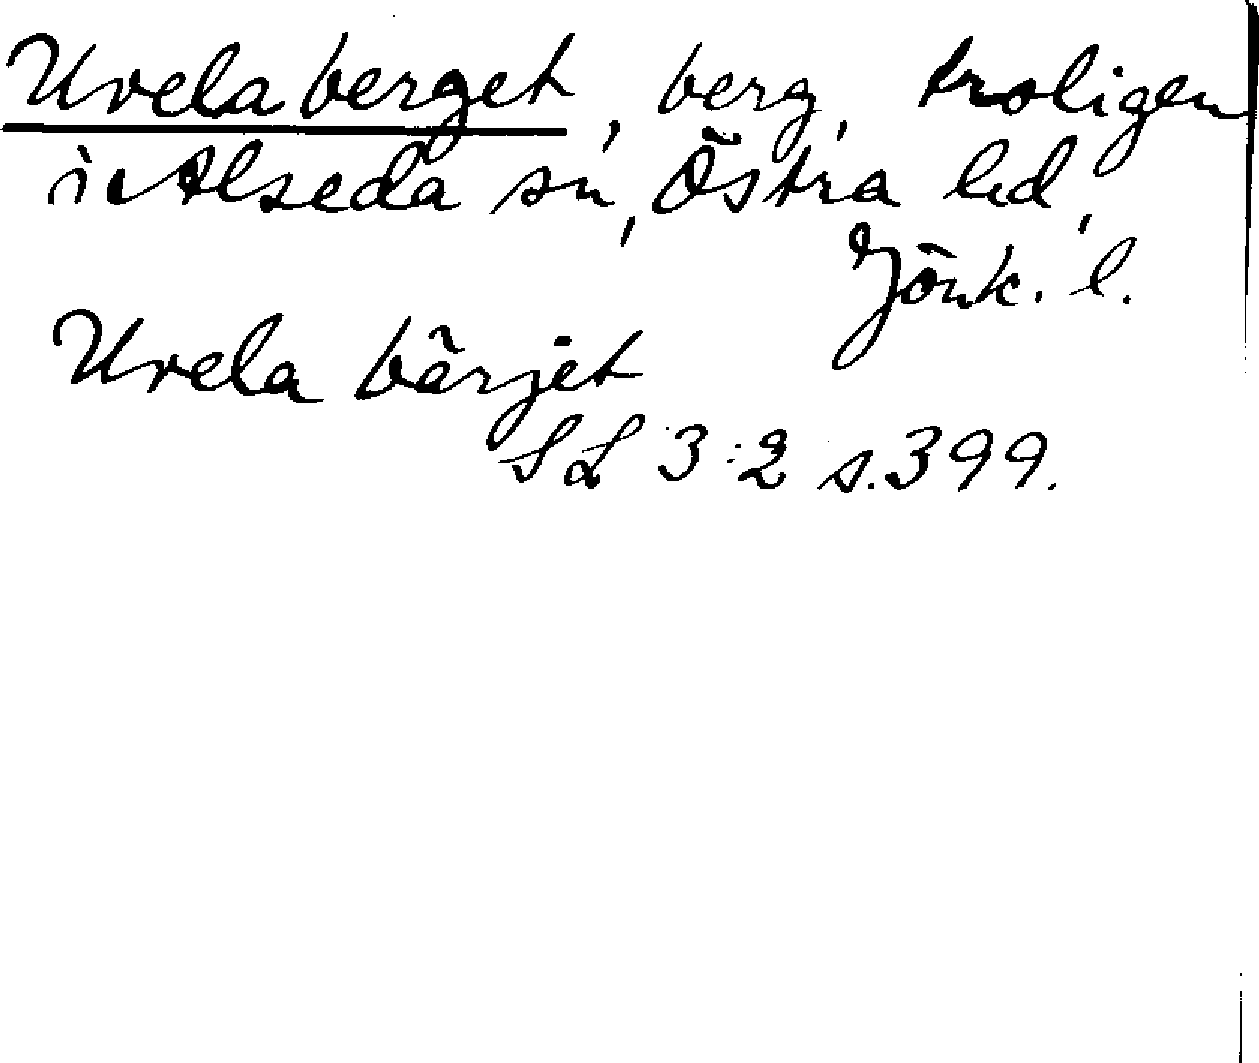 Uvelaberget, berg, troligen
i Alseda sn, Östra hd,
Jönk. l.
Uvela bärjet
SL 3:2 s. 399.